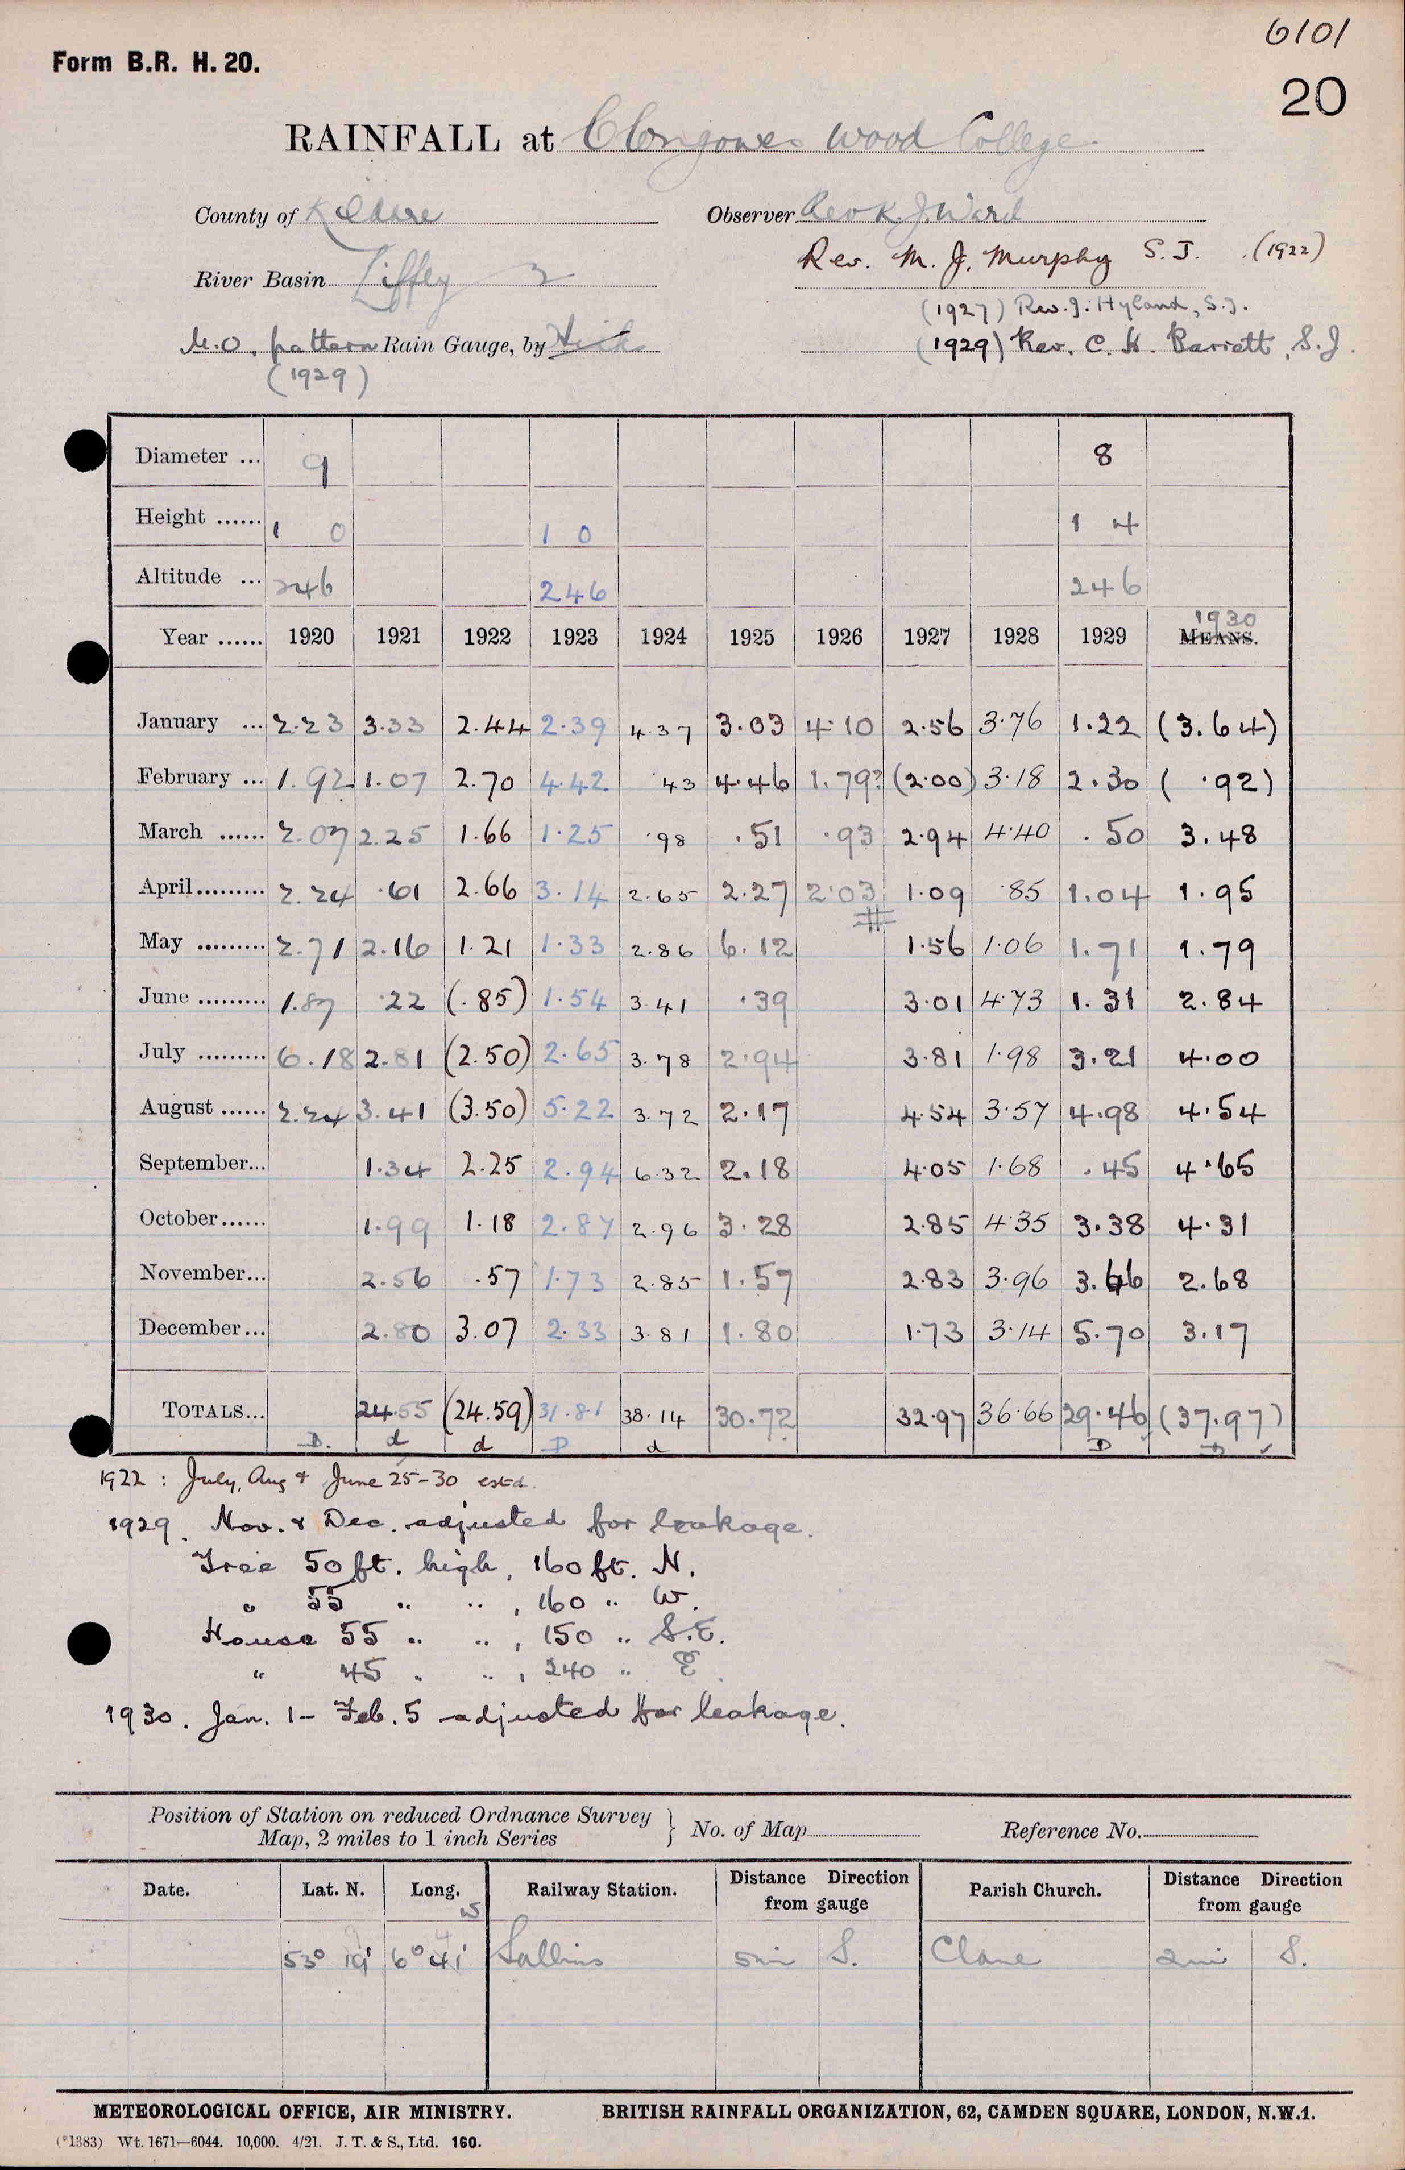 6101
Form B.R. H. 20.
20
RAINFALL at Clongowes Wood College.
County of Kildare Observer Rev K. J. Ward
Rev. M. J. Murphy S. J. (1922)
River Basin Liffey 3
(1927) Rev. J. Hyland, S.J.
M.O. pattern Rain Gauge, by Hicks
(1929) Rev. C. H. Barrett, S.J.
(1929)
Diameter ... 9 8
Height ...... 1 0 1 0 1 4
Altitude ... 246 246 246
1930
Year ...... 1920 1921 1922 1923 1924 1925 1926 1927 1928 1929 MEANS.
January ... 2.23 3.33 2.44 2.39 4.37 3.03 4.10 2.56 3.76 1.22 (3.64)
February ... 1.92 1.07 2.70 4.42 .43 4.46 1.79? (2.00) 3.18 2.30 ( .92)
March ...... 2.07 2.25 1.66 1.25 .98 .51 .93 2.94 4.40 .50 3.48
April......... 2.24 .61 2.66 3.14 2.65 2.27 2.03 1.09 .85 1.04 1.95
May ......... 2.71 2.16 1.21 1.33 2.86 6.12 1.56 1.06 1.71 1.79
June ......... 1.87 .22 (.85) 1.54 3.41 .39 3.01 4.73 1.31 2.84
July ......... 6.18 2.81 (2.50) 2.65 3.78 2.94 3.81 1.98 3.21 4.00
August ...... 2.24 3.41 (3.50) 5.22 3.72 2.17 4.54 3.57 4.98 4.54
September... 1.34 2.25 2.94 6.32 2.18 4.05 1.68 .45 4.65
October...... 1.99 1.18 2.87 2.96 3.28 2.85 4.35 3.38 4.31
November... 2.56 .57 1.73 2.85 1.57 2.83 3.96 3.66 2.68
December... 2.80 3.07 2.33 3.81 1.80 1.73 3.14 5.70 3.17
TOTALS... 24.55 (24.59) 31.81 38.14 30.72 32.97 36.66 29.46 (37.97)
D. d d D d D D ✓
1922 : July, Aug + June 25-30 estd.
1929. Nov. & Dec. adjusted for leakage.
Tree 50 ft. high, 160 ft. N.
" 55 " " , 160 " W.
House 55 " " , 150 " S.E.
" 45 " " , 240 " E.
1930. Jan. 1 - Feb. 5 adjusted for leakage.
Position of Station on reduced Ordnance Survey
Map, 2 miles to 1 inch Series } No. of Map Reference No.
Date. Lat. N. Long. W Railway Station. Distance Direction from gauge Parish Church. Distance Direction from gauge
53° 19' 6° 41' Sallins 5mi S. Clane 2mi S.
METEOROLOGICAL OFFICE, AIR MINISTRY. BRITISH RAINFALL ORGANIZATION, 62, CAMDEN SQUARE, LONDON, N.W.1.
(*1383) Wt. 1671—6044. 10,000. 4/21. J. T. & S., Ltd. 160.